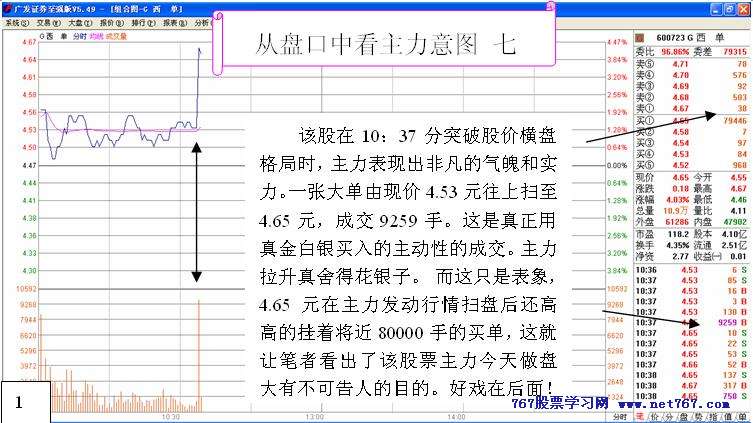 广发证券至强版V5.49 - [组合图-G 西 单]
系统(S) 交易(Z) 大盘(Z) 报价(B) 排行(P) 报表(B) 分析
G 西 单 分时 均线 成交量
从盘口中看主力意图 七
该股在 10：37 分突破股价横盘
格局时，主力表现出非凡的气魄和实
力。一张大单由现价 4.53 元往上扫至
4.65 元，成交 9259 手。这是真正用
真金白银买入的主动性的成交。主力
拉升真舍得花银子。 而这只是表象，
4.65 元在主力发动行情扫盘后还高
高的挂着将近 80000 手的买单，这就
让笔者看出了该股票主力今天做盘
大有不可告人的目的。好戏在后面！
4.67
4.65
4.62
4.60
4.58
4.55
4.53
4.51
4.49
4.47
4.44
4.41
4.39
4.36
4.34
4.32
4.30
10592
9268
7944
6620
5296
3972
2648
1324
4.47%
3.94%
3.36%
2.91%
2.46%
1.79%
1.34%
0.89%
0.45%
0.00%
0.67%
1.34%
1.79%
2.46%
2.91%
3.36%
3.84%
10592
9268
7944
6620
5296
3972
2648
1324
10:30 13:00 14:00 分时
600723 G 西 单
委比 96.86% 委差 79315
卖⑤ 4.71 78
卖④ 4.70 576
卖③ 4.69 92
卖② 4.68 503
卖① 4.67 38
买① 4.65 79446
买② 4.58 7
买③ 4.54 97
买④ 4.53 84
买⑤ 4.52 968
现价 4.65 今开 4.55
涨跌 0.18 最高 4.67
涨幅 4.03% 最低 4.46
总量 10.9万 量比 4.11
外盘 61286 内盘 47902
市盈 118.2 股本 4.10亿
换手 4.35% 流通 2.51亿
净资 2.77 收益(一) 0.01
10:36 4.53 6 S
10:37 4.53 85 S
10:37 4.53 16 B
10:37 4.53 3 B
10:37 4.53 130 B
10:37 9259 B
10:37 4.65 10 S
10:37 4.65 22 S
10:37 4.65 53 S
10:37 4.65 52 B
10:38 4.65 137 S
10:38 4.67 317 B
10:38 4.65 750 S
笔 价 分 盘 势 指 值 单
1
767股票学习网 www.net767.com